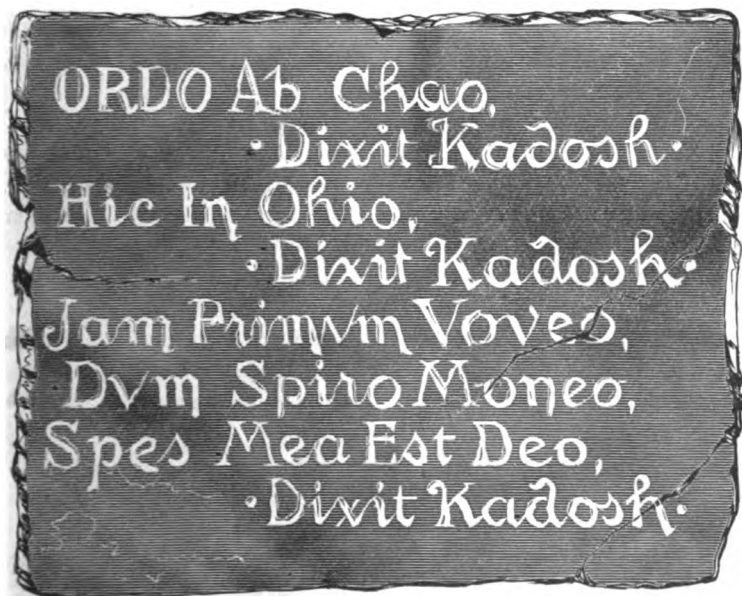 ORDO Ab Chao,
·Dixit Kadosh·
Hic In Ohio,
·Dixit Kadosh·
Jam Primvm Voveo,
Dvm Spiro Moneo,
Spes Mea Est Deo,
·Dixit Kadosh·